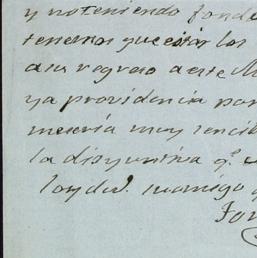 y no teniendo fond
tenemos que estar los
a su regreso a este M
ya providencia par
meseria muy sencil
la disyuntiva q.e
los de V. su amigo q